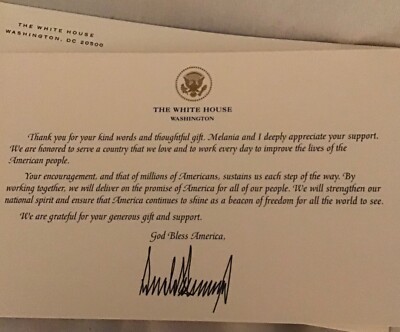 THE WHITE HOUSE
WASHINGTON, DC 20500
THE WHITE HOUSE
WASHINGTON
Thank you for your kind words and thoughtful gift. Melania and I deeply appreciate your support.
We are honored to serve a country that we love and to work every day to improve the lives of the
American people.
Your encouragement, and that of millions of Americans, sustains us each step of the way. By
working together, we will deliver on the promise of America for all of our people. We will strengthen our
national spirit and ensure that America continues to shine as a beacon of freedom for all the world to see.
We are grateful for your generous gift and support.
God Bless America,